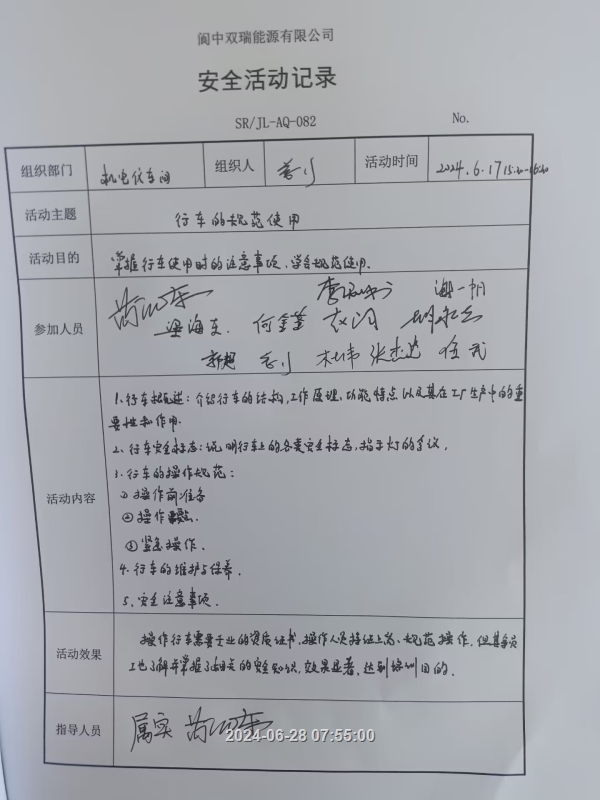 阆中双瑞能源有限公司
安全活动记录
SR/JL-AQ-082 No.
组织部门 机电仪车间 组织人 活动时间 2024.6.17 15:20-16:20
活动主题 行车的规范使用
活动目的 掌握行车使用时的注意事项、学会规范使用.
参加人员
梁海东. 何金蓬
郭超 杜伟 张杰
活动内容
1.行车概述:介绍行车的结构,工作原理、功能特点以及其在工厂生产中的重
要性和作用.
2、行车安全标志:说明行车上的各类安全标志,指示灯的含义.
3.行车的操作规范:
①操作前准备
②操作
③紧急操作.
4.行车的维护与保养.
5、安全注意事项.
活动效果
操作行车需要专业的资质证书,操作人员持证上岗、规范操作.但其余员
工也了解并掌握了相关的安全知识,效果显著,达到培训目的.
指导人员 属实
2024-06-28 07:55:00